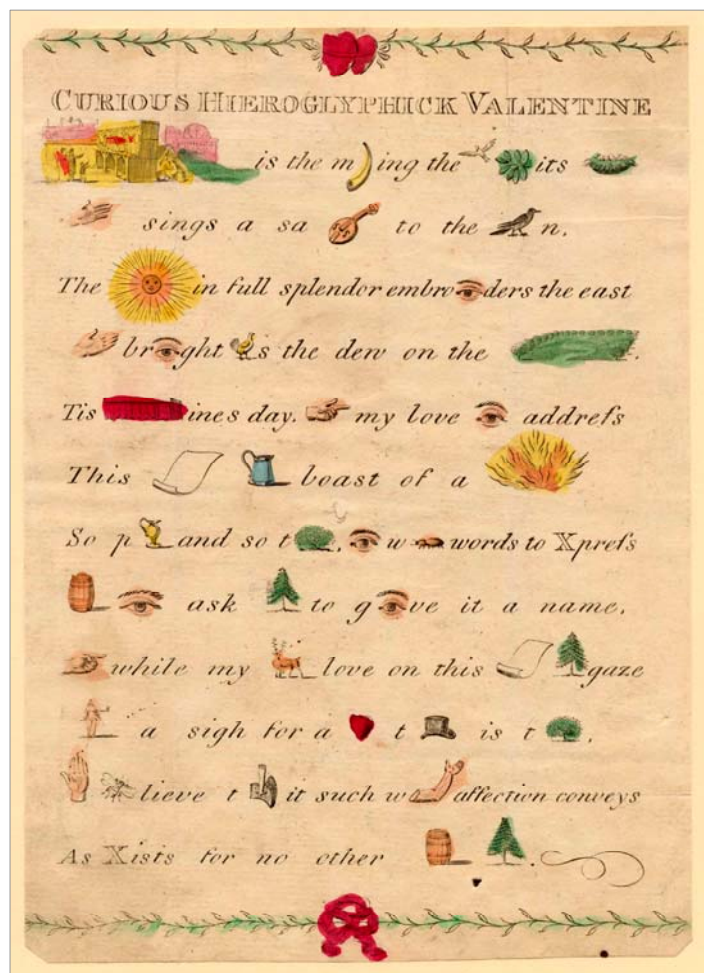 CURIOUS HIEROGLYPHICK VALENTINE
is the m ing the its
sings a sa to the n.
The in full splendor embro ders the east
br ght s the dew on the .
Tis ines day. my love addreſs
This boast of a
So p and so t . w words to Xpreſs
ask to g ve it a name.
while my love on this gaze
a sigh for a t is t .
lieve t it such w affection conveys
As Xists for no other .